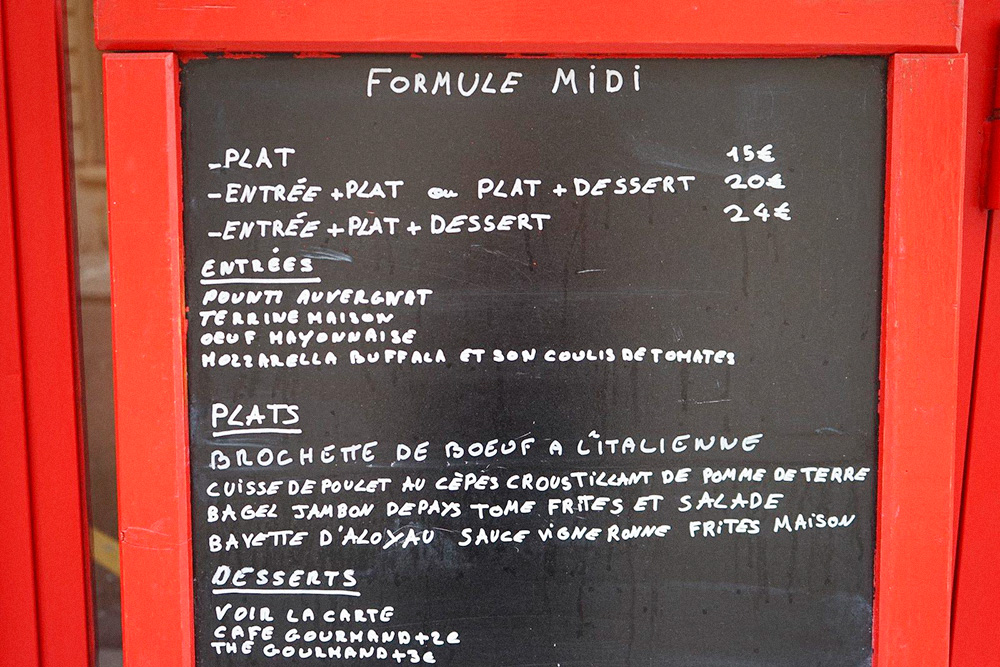 FORMULE MiDi
-PLAT 15€
-ENTRÉE +PLAT ou PLAT + DESSERT 20€
-ENTRÉE +PLAT + DESSERT 24€
ENTRÉES
POUNTI AUVERGNAT
TERRINE MAISON
OEUF MAYONNAISE
MOZZARELLA BUFFALA ET SON COULIS DE TOMATES
PLATS
BROCHETTE DE BOEUF A L'ITALIENNE
CUISSE DE POULET AU CÈPES CROUSTILLANT DE POMME DE TERRE
BAGEL JAMBON DEPAYS TOME FRITES ET SALADE
BAVETTE D'ALOYAU SAUCE VIGNERONNE FRITES MAISON
DESSERTS
VOIR LA CARTE
CAFE GOURMAND+2€
THE GOURMAND+3€